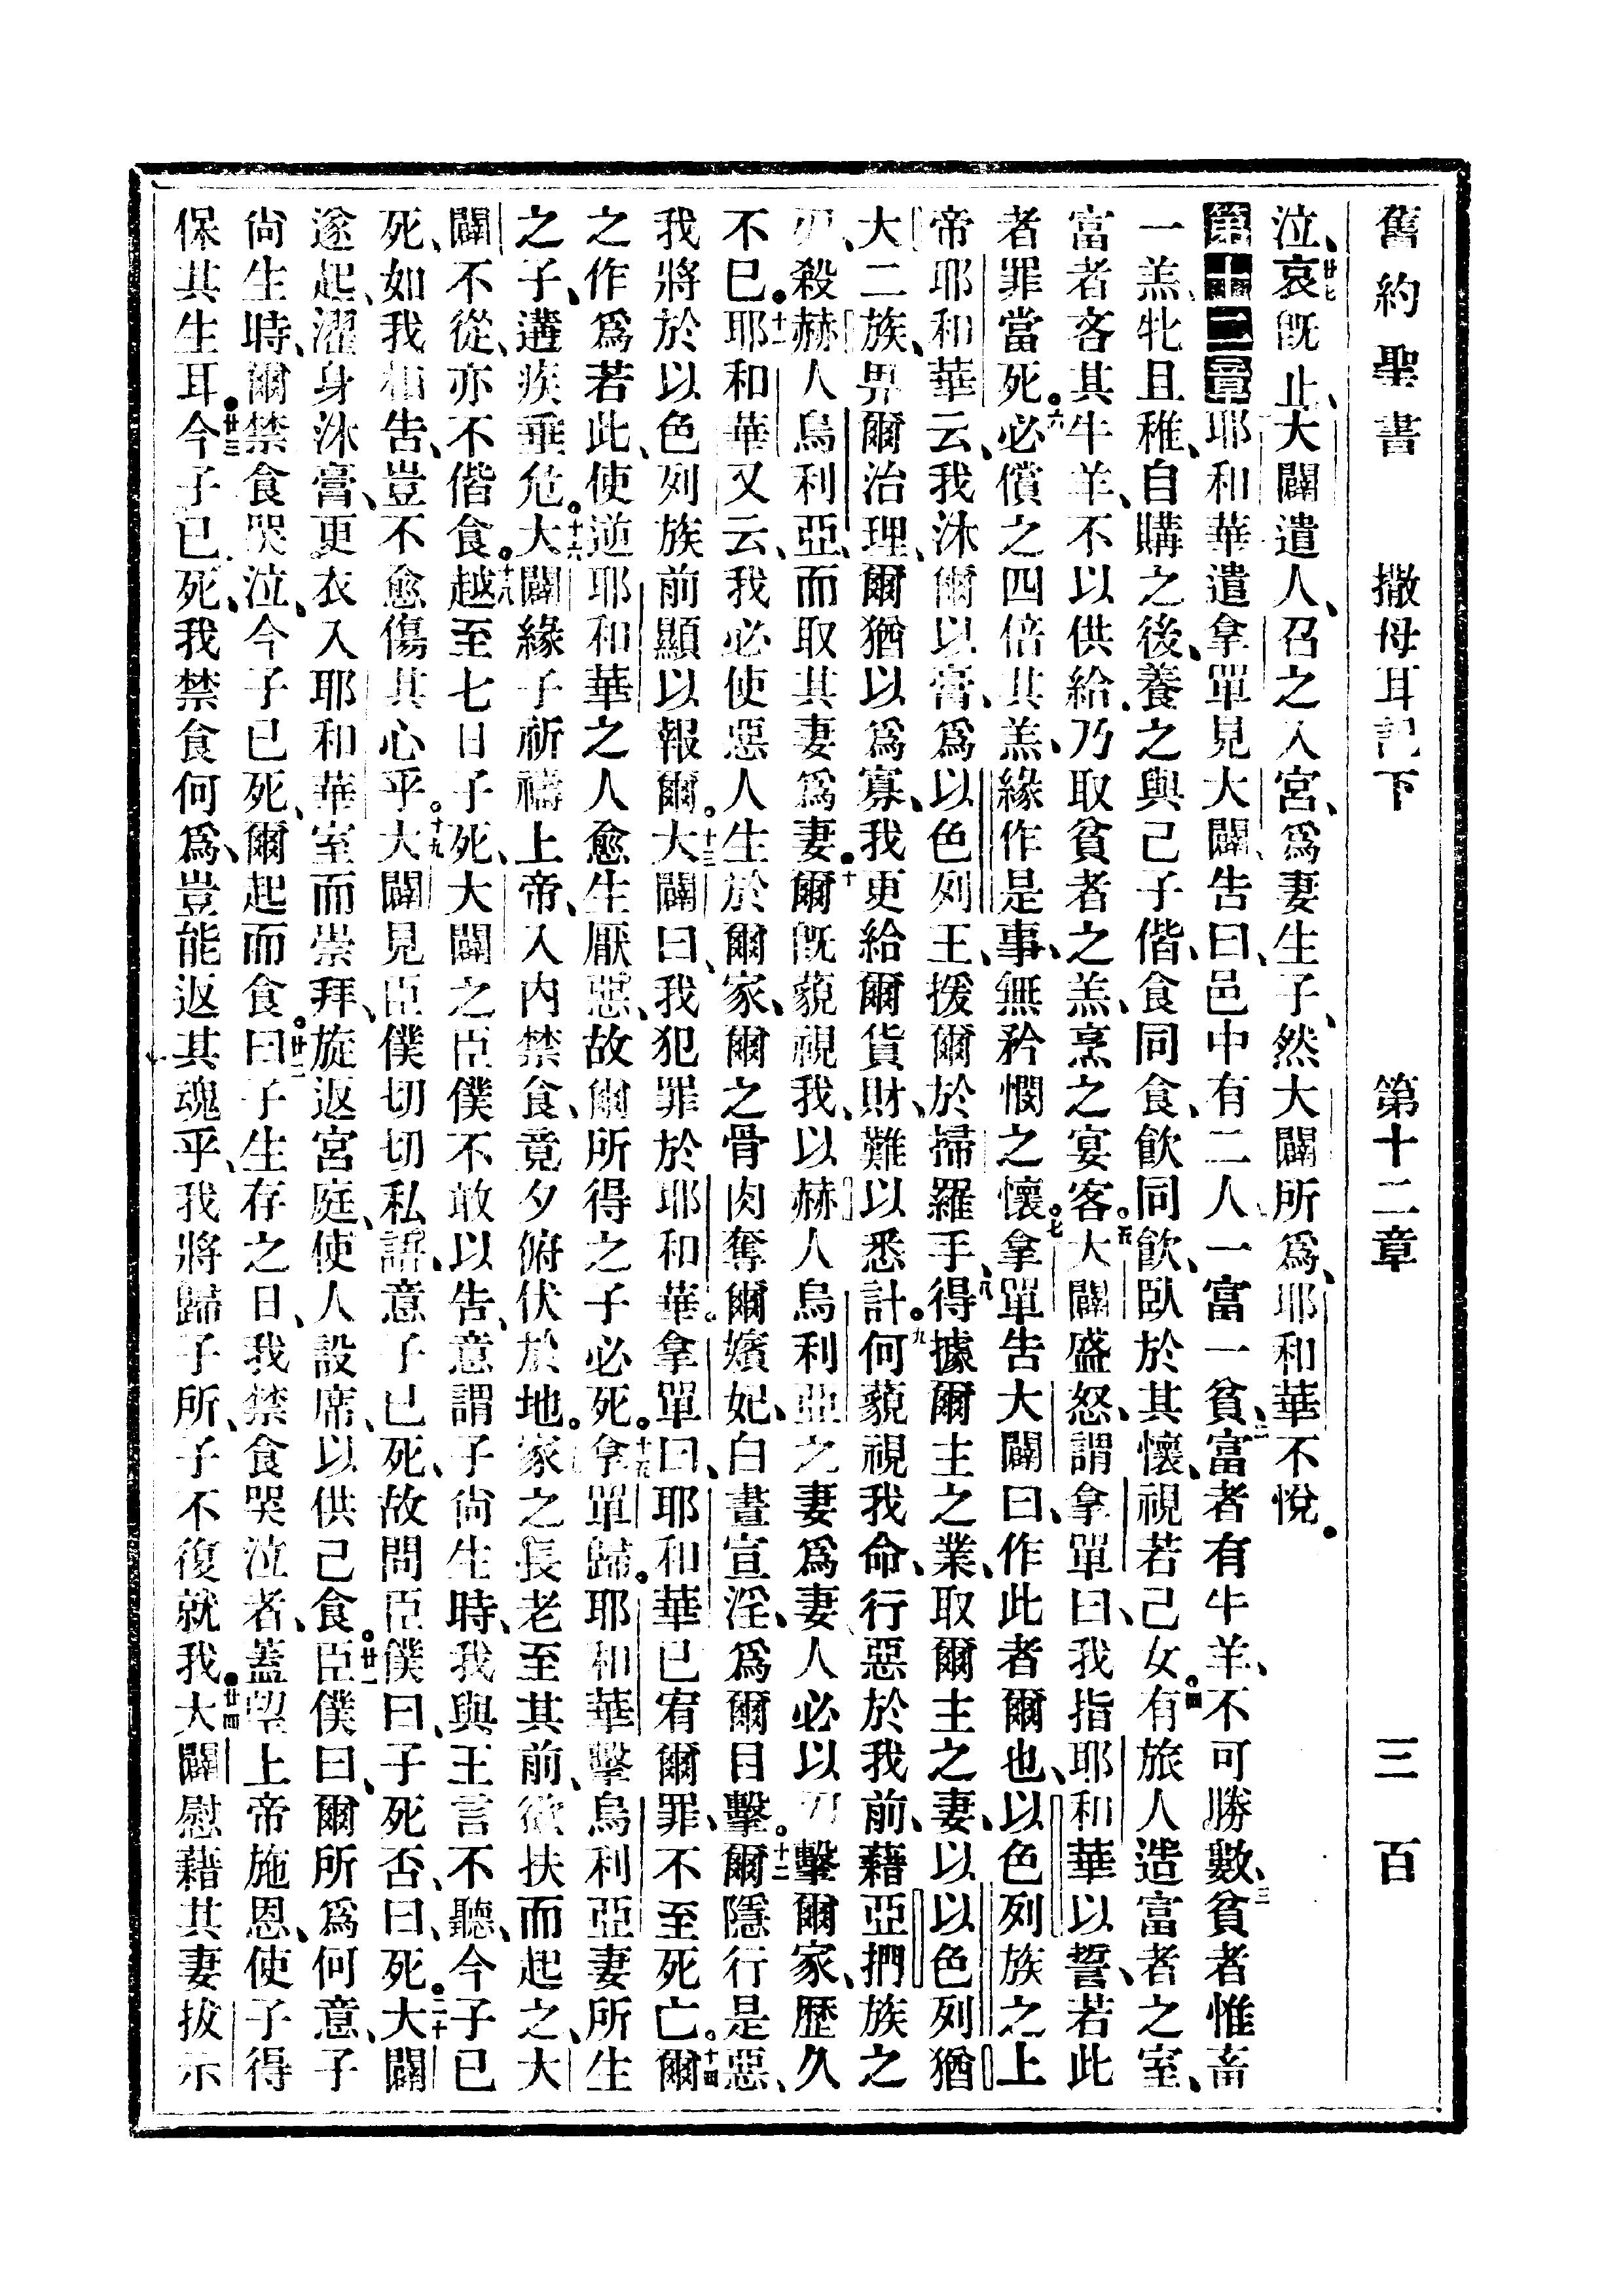 舊約聖書 撒母耳記下 第十二章 三百
泣、廿七哀旣止、大闢遣人、召之入宮、爲妻生子、然大闢所爲、耶和華不悅。
第十二章耶和華遣拿單見大闢、告曰、邑中有二人、一富一貧、二富者有牛羊、不可勝數、三貧者惟畜
一羔、牝且稚、自購之後、養之與己子偕、食同食、飲同飲、臥於其懷、視若己女。四有旅人造富者之室、
富者吝其牛羊、不以供給、乃取貧者之羔、烹之宴客。五大闢盛怒、謂拿單曰、我指耶和華以誓、若此
者罪當死。六必償之四倍其羔、緣作是事、無矜憫之懷。七拿單告大闢曰、作此者爾也、以色列族之上
帝耶和華云、我沐爾以膏、爲以色列王、援爾於掃羅手、八得據爾主之業、取爾主之妻、以以色列猶
大二族、畀爾治理、爾猶以爲寡、我更給爾貨財、難以悉計。九何藐視我命、行惡於我前、藉亞捫族之
刃、殺赫人烏利亞、而取其妻爲妻。十爾旣藐視我、以赫人烏利亞之妻爲妻、人必以刃擊爾家、歷久
不已。十一耶和華又云、我必使惡人生於爾家、爾之骨肉奪爾嬪妃、白晝宣淫、爲爾目擊。十二爾隱行是惡、
我將於以色列族前顯以報爾。十三大闢曰、我犯罪於耶和華。拿單曰、耶和華已宥爾罪、不至死亡。十四爾
之作爲若此、使逆耶和華之人愈生厭惡、故爾所得之子必死。十五拿單歸。耶和華擊烏利亞妻所生
之子、遘疾垂危。十六大闢緣子祈禱上帝、入內禁食、竟夕俯伏於地。家之長老至其前、欲扶而起之、大
闢不從、亦不偕食。十八越至七日子死、大闢之臣僕不敢以告、意謂子尙生時、我與王言不聽、今子已
死、如我相告、豈不愈傷其心乎。十九大闢見臣僕切切私語、意子已死、故問臣僕曰、子死否、曰、死。二十大闢
遂起、濯身沐膏、更衣入耶和華室而崇拜、旋返宮庭、使人設席、以供己食。廿一臣僕曰、爾所爲何意、子
尙生時、爾禁食哭泣、今子已死、爾起而食。廿二曰子生存之日、我禁食哭泣者、蓋望上帝施恩、使子得
保其生耳。廿三今子已死、我禁食何爲、豈能返其魂乎、我將歸子所、子不復就我。廿四大闢慰藉其妻拔示